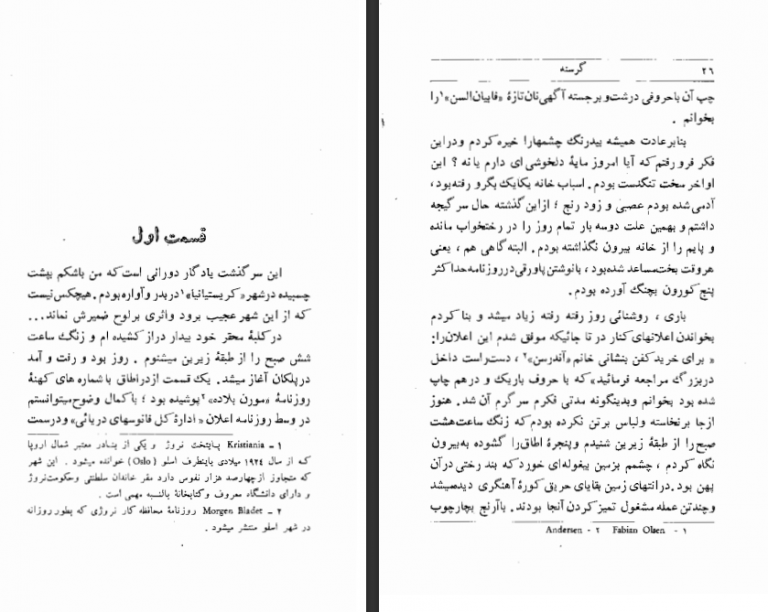 قسمت اول
این سرگذشت یادگار دورانی است که من باشکم بپشت
چسبیده درشهر «کریستیانیا»۱ دربدر وآواره بودم. هیچکس نیست
که از این شهر عجیب برود واثری برلوح ضمیرش نماند...
درکلبهٔ محقر خود بیدار درازکشیده ام و زنگ ساعت
شش صبح را از طبقهٔ زیرین میشنوم . روز بود و رفت و آمد
درپلکان آغاز میشد. یک قسمت ازدر اطاق باشماره های کهنهٔ
روزنامهٔ «مورن بلاده»۲ پوشیده بود ؛ باکمال وضوح میتوانستم
در وسط روزنامه اعلان «ادارهٔ کل فانوسهای دریائی» ودرست
۱ – Kristiania پایتخت نروژ و یکی از بنادر معتبر شمال اروپا
که از سال ۱۹۲۴ میلادی باینطرف اسلو (Oslo) خوانده میشود . این شهر
که متجاوز ازچهارصد هزار نفوس دارد مقر خاندان سلطنتی وحکومت نروژ
و دارای دانشگاه معروف و کتابخانهٔ بالنسبه مهمی است .
۲ – Morgen Bladet روزنامهٔ محافظه کار نروژی که بطور روزانه
در شهر اسلو منتشر میشود .
۲۶ گرسنه
چپ آن باحروفی درشت وبرجسته آگهی نان تازهٔ «فابیان السن»۱ را
بخوانم .
بنابرعادت همیشه بیدرنگ چشمهارا خیره کردم ودراین
فکر فرو رفتم که آیا امروز مایهٔ دلخوشی ای دارم یا نه ؟ این
اواخر سخت تنگدست بودم. اسباب خانه یکایک بگرو رفته بود،
آدمی شده بودم عصبی و زود رنج ؛ ازاین گذشته حال سرگیجه
داشتم و بهمین علت دوسه بار تمام روز را در رختخواب مانده
و پایم را از خانه بیرون نگذاشته بودم. البته گاهی هم ، یعنی
هروقت بخت مساعد شده بود، بانوشتن پاورقی درروزنامه حداکثر
پنج کورون بچنگ آورده بودم.
باری ، روشنائی روز رفته رفته زیاد میشد و بنا کردم
بخواندن اعلانهای کنار در تا جائیکه موفق شدم این اعلان را:
«برای خرید کفن بنشانی خانم «آندرسن»۲ ، دست راست داخل
دربزرگ مراجعه فرمائید» که با حروف باریک و درهم چاپ
شده بود بخوانم وبدینگونه مدتی فکرم سرگرم آن شد. هنوز
ازجا برنخاسته ولباس برتن نکرده بودم که زنگ ساعت هشت
صبح را از طبقهٔ زیرین شنیدم وپنجرهٔ اطاق را گشوده به بیرون
نگاه کردم ، چشمم بزمین بیغوله ای خورد که بند رختی درآن
پهن بود. درانتهای زمین بقایای حریق کورهٔ آهنگری دیده میشد
وچندتن عمله مشغول تمیزکردن آنجا بودند. باآرنج بچارچوب
۱ - Fabian Olsen ۲ - Andersen